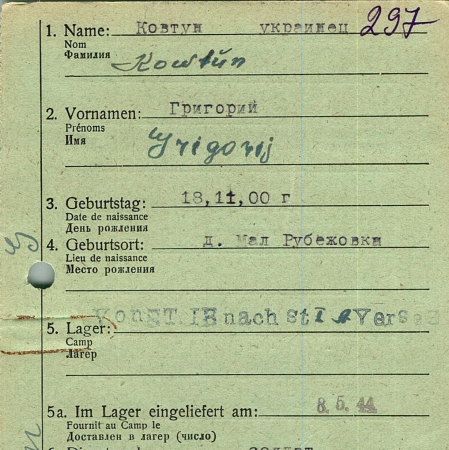 1. Name: Ковтун украинец 297
Nom
Фамилия
Kowtún
2. Vornamen: Григорий
Prénoms
Имя
Grigorij
3. Geburtstag: 18,11,00 г
Date de naissance
День рождения
4. Geburtsort: д. Мал Рубежовки
Lieu de naissance
Место рождения
5. Lager:
Camp
Лагерь
5a. Im Lager eingeliefert am: 8. 5. 44
Fournit au Camp le
Доставлен в лагерь (число)